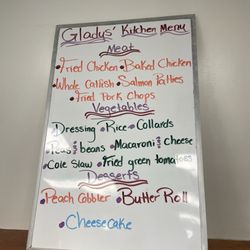 Gladys' Kitchen Menu
Meat
• Fried Chicken • Baked Chicken
• Whole Catfish • Salmon Patties
• Fried Pork Chops
Vegetables
• Dressing • Rice • Collards
• Peas & beans • Macaroni & cheese
• Cole Slaw • Fried green tomatoes
Desserts
• Peach Cobbler • Butter Roll
• Cheesecake